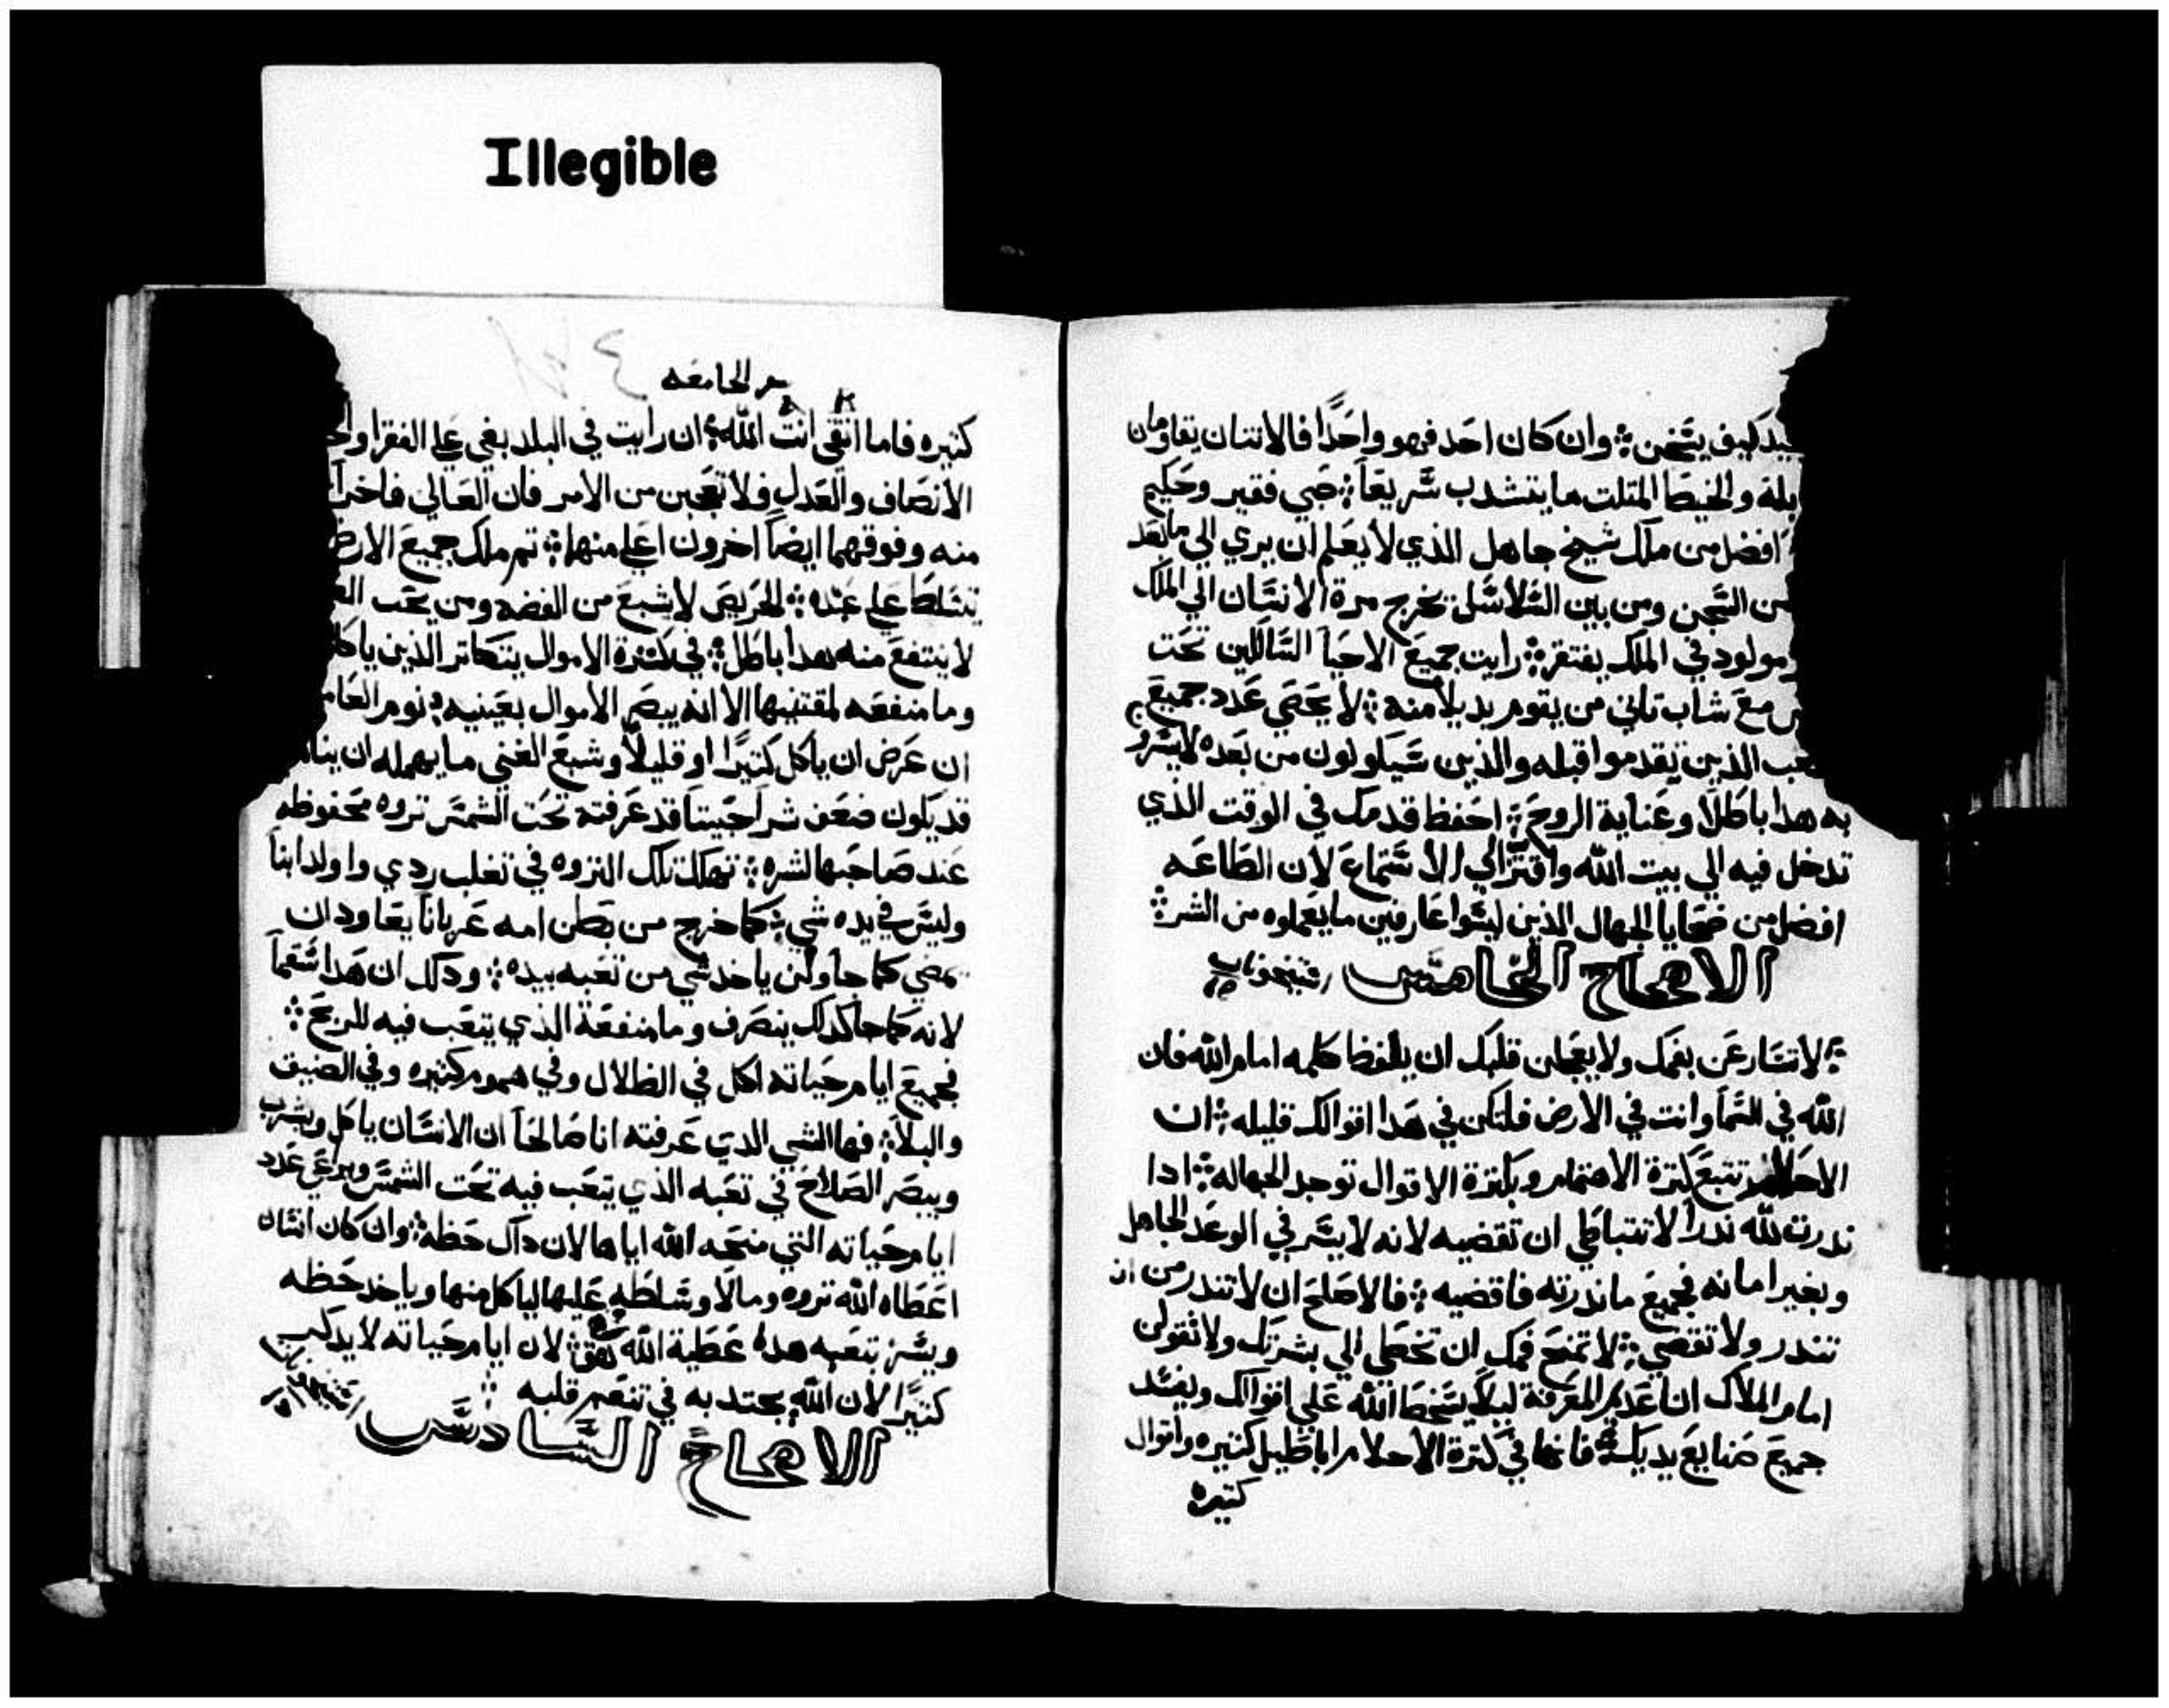 Illegible
يتخن ؞ وان كان احد فهو واحدًا فالاتنان يقاومان
والخيط المتلت ما يتشدب شريعًا ؞ صبي فقير وحكيم
افضل من ملك شيخ جاهل الذي لا يعلم ان يري الي ما بعد
من السَجن ومن بين السَلاسَل تخرج مرة الانسَان الي الملك
مولود في الملك يفتقر ؞ رايت جميع الاحيا السَالكين تحت
مع شاب تاني من يقوم بديلًا منه ؞ لا يحصي عدد جميع
الذين تقدموا قبله والذين سَيكونون من بعده
به هدا باطلًا وعناية الروح ؞ احفظ قدمك في الوقت الذي
تدخل فيه الي بيت الله واقترّ الي الاسَتماع لان الطاعه
افضل من ضحايا الجهال الذين ليسَوا عارفين ما يعملوه من الشر ؞
الاصحاح الخامسَ
؞ لا تسَارعن بفمك ولا يعجلن قلبك ان يلفظ كلمه امام الله فان
الله في السَما وانت في الارض فلتكن في هدا اقوالك قليله ؞ ان
الاحلام تتبع كترة الاهتمام وبكترة الاقوال توجد الجهاله ؞ ادا
ندرت لله ندرًا لا تتباطي ان تقضيه لانه لا يسَر في الوعد الجاهل
وبغير امانه فجميع ما ندرته فاقضيه ؞ فالاصلح ان لا تندر من ان
تندر ولا تقضي ؞ لا تمنح فمك ان تخطي الي بشرتك ولا تقولن
امام الملاك ان عدم المعرفة ليلًا يسَخط الله علي اقوالك ويفسَد
جميع صنايع يديك ؞ فانها في كترة الاحلام اباطيل كتيره واقوال
كتيره
الجامعه
كتيره فاما اتقي انت الله ؞ ان رايت في البلد بغي علي الفقرا
الانصاف والعدل فلا تعجبن من الامر فان العالي فاخرًا
منه وفوقهما ايضًا اخرون اعلي منها ؞ تم ملك جميع الارض
تتسَلط علي عبده ؞ الحريص لا يشبع من الفضه ومن يحب
لا ينتفع منه هدا باطل ؞ في كترة الاموال يتكاتر الذين
وما منفعه لمقتنيها الا انه يبصر الاموال بعينيه ؞ نوم
ان عرض ان ياكل كتيرًا او قليلًا وشبع الغني ما يهمله ان
قد يكون ضعف شر اخبيتًا قد عرفته تحت الشمسَ تروه محفوظه
عند صاحبها لشره ؞ تهلك تلك التروه في تغلب ردي واولد ابنًا
وليسَ في يده شي ؞ كما خرج من بطن امه عريانًا يعاود ان
يمضي كما جا ولن ياخد شي من تعبه بيده ؞ ودلك ان هدا سَقمًا
لانه كما جا كدلك ينصرف وما منفعة الذي يتعب فيه للريح ؞
فجميع ايام حياته اكل في الظلال وفي هموم كتيره وفي الضيق
والبلا ؞ فها الشي الدي عرفته انا صالحًا ان الانسَان ياكل ويشرب
ويبصر الصلاح في تعبه الذي يتعب فيه تحت الشمسَ ويرعي عدد
ايام حياته التي منحه الله اياها لان داك حظه ؞ وان كان انسَان
اعطاه الله تروه ومالًا وسَلطه عليها لياكل منها وياخد حظه
ويسَر بتعبه هده عطية الله ؞ لان ايام حياته لا يدكر
كتيرًا لان الله يجتدبه في تنعم قلبه ؞
الاصحاح السَادسَ